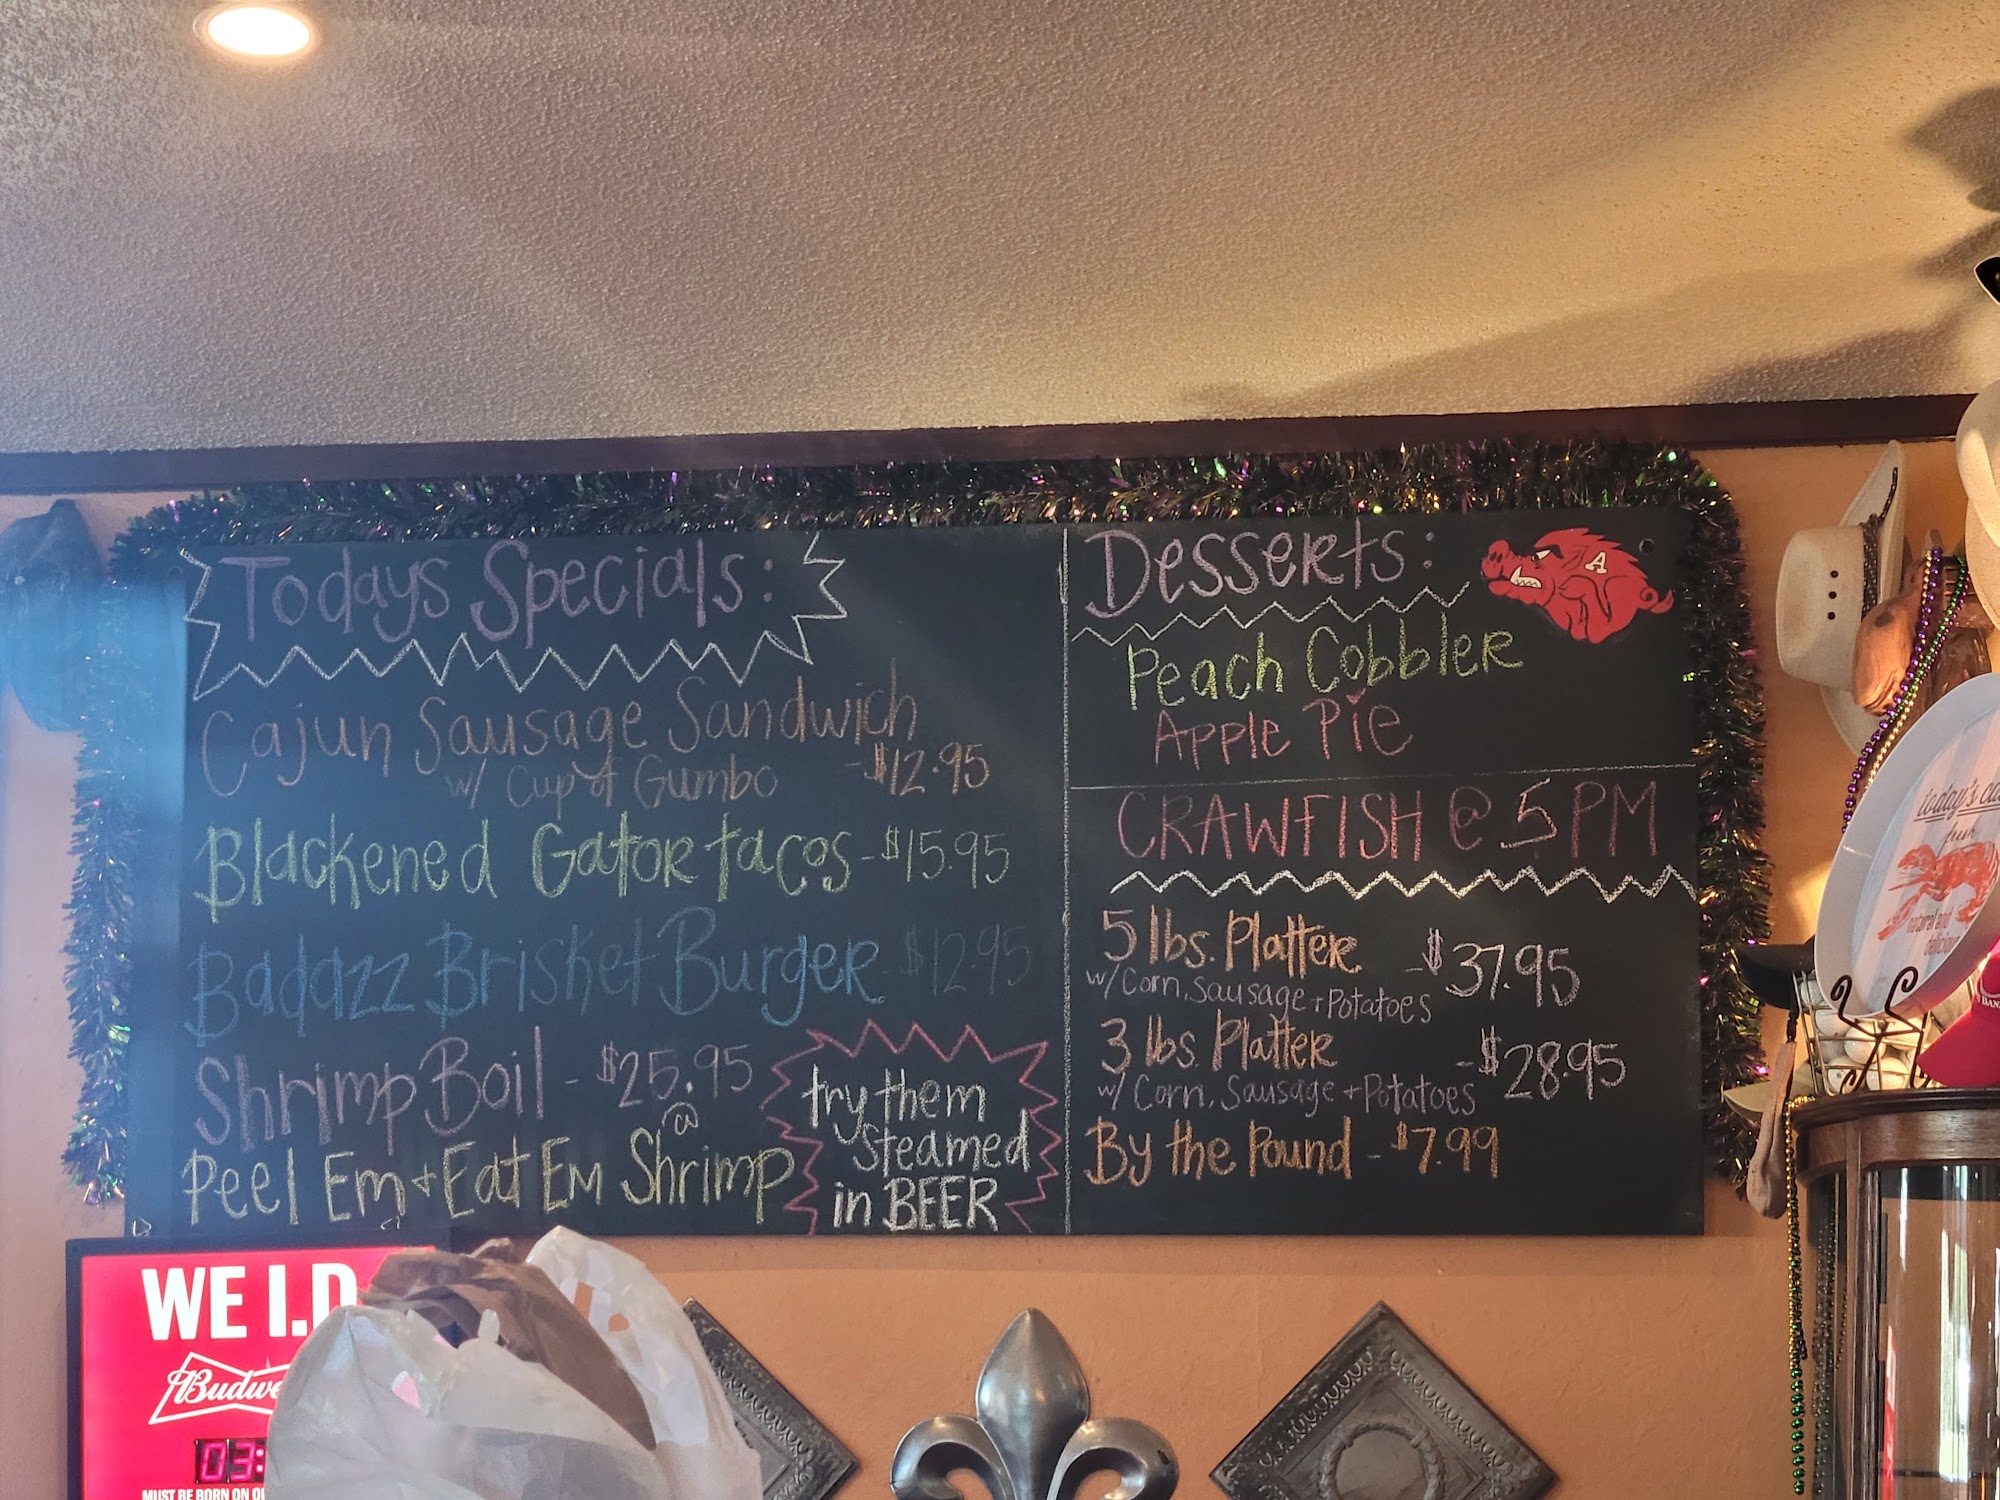 Todays Specials:
Cajun Sausage Sandwich
w/ Cup of Gumbo -$12.95
Blackened Gator tacos -$15.95
Badazz Brisket Burger -$12.95
Shrimp Boil - $25.95
Peel Em + Eat Em Shrimp
try them
steamed
in BEER
Desserts:
A
Peach Cobbler
Apple Pie
CRAWFISH @ 5PM
5 lbs. Platter -$37.95
w/ Corn, Sausage + Potatoes
3 lbs. Platter -$28.95
w/ Corn, Sausage + Potatoes
By the Pound - $7.99
WE I.D
Budwe
03:
MUST BE BORN ON
today's
fresh
natural and
delicious